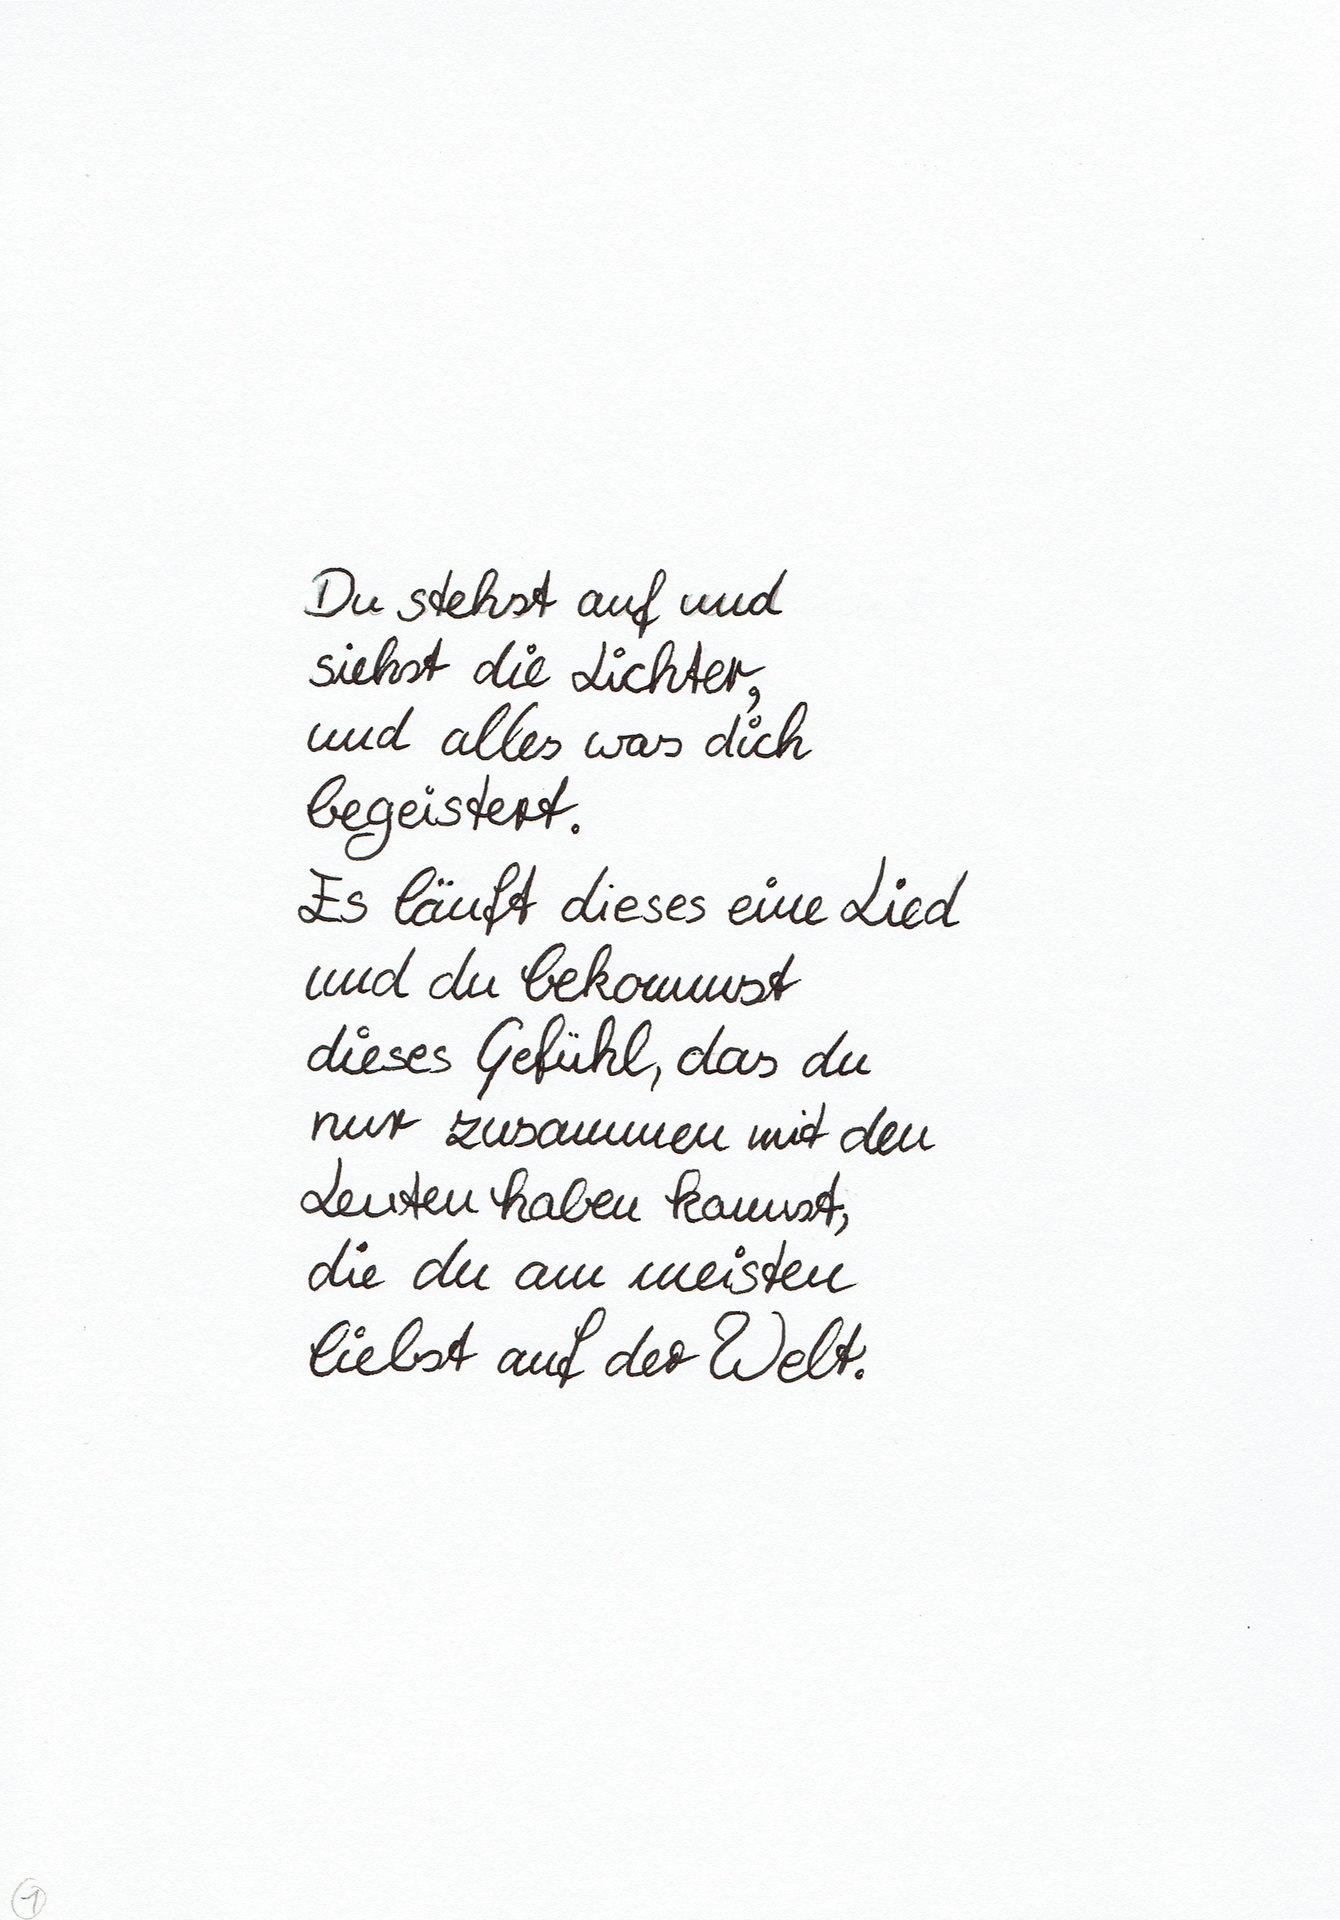 Du stehst auf und
siehst die Lichter,
und alles was dich
begeistert.
Es läuft dieses eine Lied
und du bekommst
dieses Gefühl, das du
nur zusammen mit den
Leuten haben kannst,
die du am meisten
liebst auf der Welt.
1